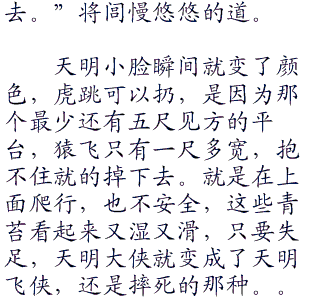 去。”将闾慢悠悠的道。
天明小脸瞬间就变了颜
色，虎跳可以扔，是因为那
个最少还有五尺见方的平
台，猿飞只有一尺多宽，抱
不住就的掉下去。就是在上
面爬行，也不安全，这些青
苔看起来又湿又滑，只要失
足，天明大侠就变成了天明
飞侠，还是摔死的那种。。